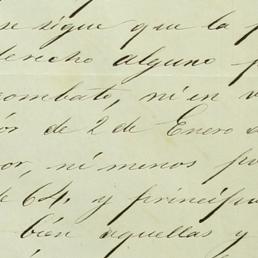 se sigue que la
derecho alguno
combate, ni en
de 2 de Enero
or, ni menos po
e 64, y principa
bien aquellas y